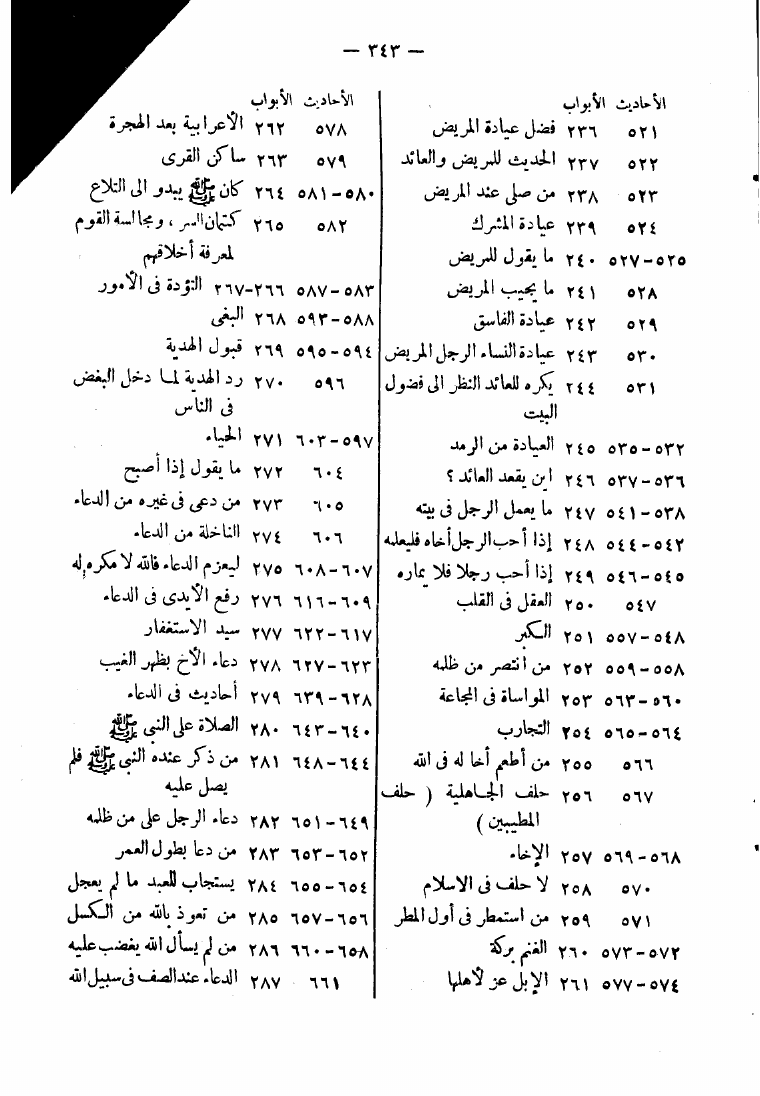 — ٣٤٣ —
الأحاديث الأبواب
٥٢١ ٢٣٦ فضل عيادة المريض
٥٢٢ ٢٣٧ الحديث للمريض والعائد
٥٢٣ ٢٣٨ من صلى عند المريض
٥٢٤ ٢٣٩ عيادة المشرك
٥٢٥-٥٢٧ ٢٤٠ ما يقول للمريض
٥٢٨ ٢٤١ ما يجيب المريض
٥٢٩ ٢٤٢ عيادة الفاسق
٥٣٠ ٢٤٣ عيادة النساء الرجل المريض
٥٣١ ٢٤٤ يكره للعائد النظر الى فضول
البيت
٥٣٢-٥٣٥ ٢٤٥ العيادة من الرمد
٥٣٦-٥٣٧ ٢٤٦ اين يقعد العائد ؟
٥٣٨-٥٤١ ٢٤٧ ما يعمل الرجل فى بيته
٥٤٢-٥٤٤ ٢٤٨ إذا أحب الرجل أخاه فليعلمه
٥٤٥-٥٤٦ ٢٤٩ إذا أحب رجلا فلا يماره
٥٤٧ ٢٥٠ العقل فى القلب
٥٤٨-٥٥٧ ٢٥١ الكبر
٥٥٨-٥٥٩ ٢٥٢ من انتصر من ظلمه
٥٦٠-٥٦٣ ٢٥٣ المواساة فى المجاعة
٥٦٤-٥٦٥ ٢٥٤ التجارب
٥٦٦ ٢٥٥ من أطعم أخا له فى الله
٥٦٧ ٢٥٦ حلف الجاهلية ( حلف
المطيبين )
٥٦٨-٥٦٩ ٢٥٧ الإخاء
٥٧٠ ٢٥٨ لا حلف فى الاسلام
٥٧١ ٢٥٩ من استمطر فى أول المطر
٥٧٢-٥٧٣ ٢٦٠ الغنم بركة
٥٧٤-٥٧٧ ٢٦١ الإبل عز لأهلها
الأحاديث الأبواب
٥٧٨ ٢٦٢ الأعرابية بعد الهجرة
٥٧٩ ٢٦٣ ساكن القرى
٥٨٠-٥٨١ ٢٦٤ كان ﷺ يبدو الى التلاع
٥٨٢ ٢٦٥ كتمان السر ، ومجالسة القوم
لمعرفة أخلاقهم
٥٨٣-٥٨٧ ٢٦٦-٢٦٧ التؤدة فى الأمور
٥٨٨-٥٩٣ ٢٦٨ البغى
٥٩٤-٥٩٥ ٢٦٩ قبول الهدية
٥٩٦ ٢٧٠ رد الهدية لما دخل البغض
فى الناس
٥٩٧-٦٠٣ ٢٧١ الحياء
٦٠٤ ٢٧٢ ما يقول إذا أصبح
٦٠٥ ٢٧٣ من دعى فى غيره من الدعاء
٦٠٦ ٢٧٤ الناخلة من الدعاء
٦٠٧-٦٠٨ ٢٧٥ ليعزم الدعاء فالله لا مكره له
٦٠٩-٦١٦ ٢٧٦ رفع الأيدى فى الدعاء
٦١٧-٦٢٢ ٢٧٧ سيد الاستغفار
٦٢٣-٦٢٧ ٢٧٨ دعاء الأخ بظهر الغيب
٦٢٨-٦٣٩ ٢٧٩ أحاديث فى الدعاء
٦٤٠-٦٤٣ ٢٨٠ الصلاة على النبى ﷺ
٦٤٤-٦٤٨ ٢٨١ من ذكر عنده النبى ﷺ فلم
يصل عليه
٦٤٩-٦٥١ ٢٨٢ دعاء الرجل على من ظلمه
٦٥٢-٦٥٣ ٢٨٣ من دعا بطول العمر
٦٥٤-٦٥٥ ٢٨٤ يستجاب للعبد ما لم يعجل
٦٥٦-٦٥٧ ٢٨٥ من تعوذ بالله من الكسل
٦٥٨-٦٦٠ ٢٨٦ من لم يسأل الله يغضب عليه
٦٦١ ٢٨٧ الدعاء عند الصف فى سبيل الله